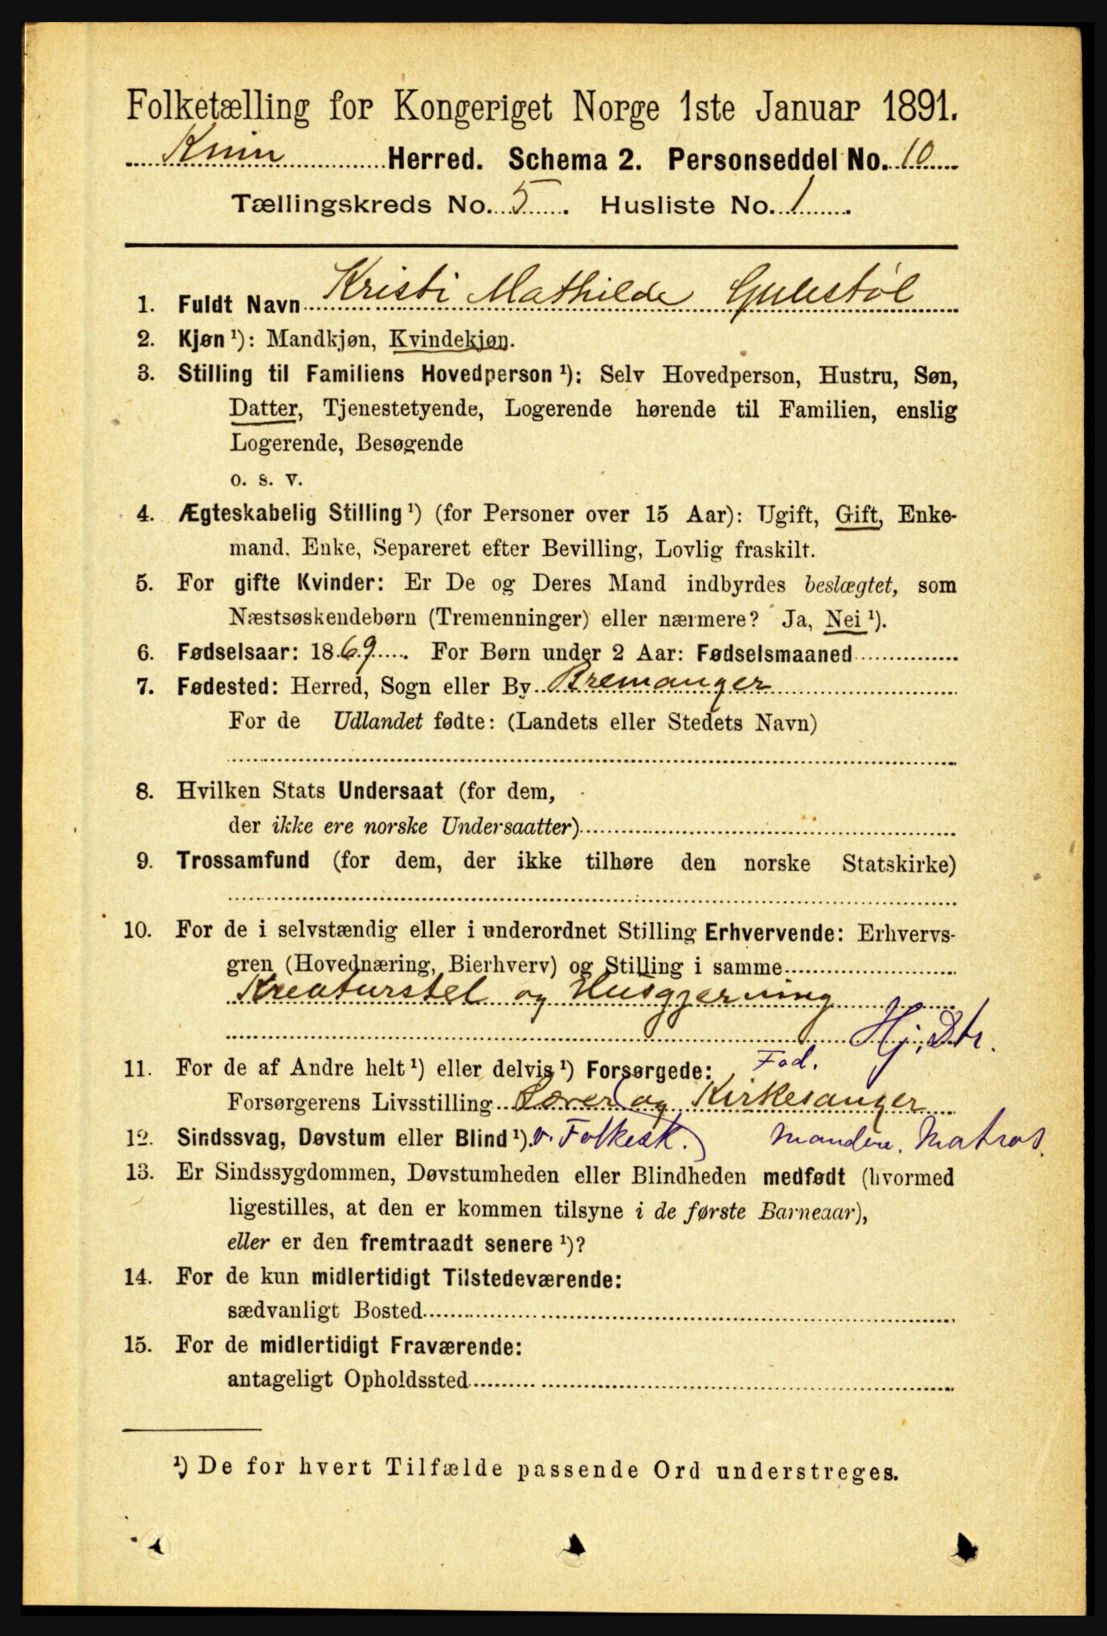 Folketælling for Kongeriget Norge 1ste Januar 1891.
Kinn Herred. Schema 2. Personseddel No. 10
Tællingskreds No. 5. Husliste No. 1.
1. Fuldt Navn Kristi Mathilde Gulestøl
2. Kjøn ¹): Mandkjøn, Kvindekjøn.
3. Stilling til Familiens Hovedperson ¹): Selv Hovedperson, Hustru, Søn,
Datter, Tjenestetyende, Logerende hørende til Familien, enslig
Logerende, Besøgende
o. s. v.
4. Ægteskabelig Stilling ¹) (for Personer over 15 Aar): Ugift, Gift, Enke-
mand, Enke, Separeret efter Bevilling, Lovlig fraskilt.
5. For gifte Kvinder: Er De og Deres Mand indbyrdes beslægtet, som
Næstsøskendebørn (Tremenninger) eller nærmere? Ja, Nei ¹).
6. Fødselsaar: 1869. For Børn under 2 Aar: Fødselsmaaned
7. Fødested: Herred, Sogn eller By Bremanger
For de Udlandet fødte: (Landets eller Stedets Navn)
8. Hvilken Stats Undersaat (for dem,
der ikke ere norske Undersaatter)
9. Trossamfund (for dem, der ikke tilhøre den norske Statskirke)
10. For de i selvstændig eller i underordnet Stilling Erhvervende: Erhvervs-
gren (Hovednæring, Bierhverv) og Stilling i samme
Kreaturstel og Husgjerning
Hj. Dtr.
11. For de af Andre helt ¹) eller delvis ¹) Forsørgede: Fad.
Forsørgerens Livsstilling Lærer og Kirkesanger
12. Sindssvag, Døvstum eller Blind ¹). v. Folkesk.) Manden. Matros.
13. Er Sindssygdommen, Døvstumheden eller Blindheden medfødt (hvormed
ligestilles, at den er kommen tilsyne i de første Barneaar),
eller er den fremtraadt senere ¹)?
14. For de kun midlertidigt Tilstedeværende:
sædvanligt Bosted
15. For de midlertidigt Fraværende:
antageligt Opholdssted
¹) De for hvert Tilfælde passende Ord understreges.